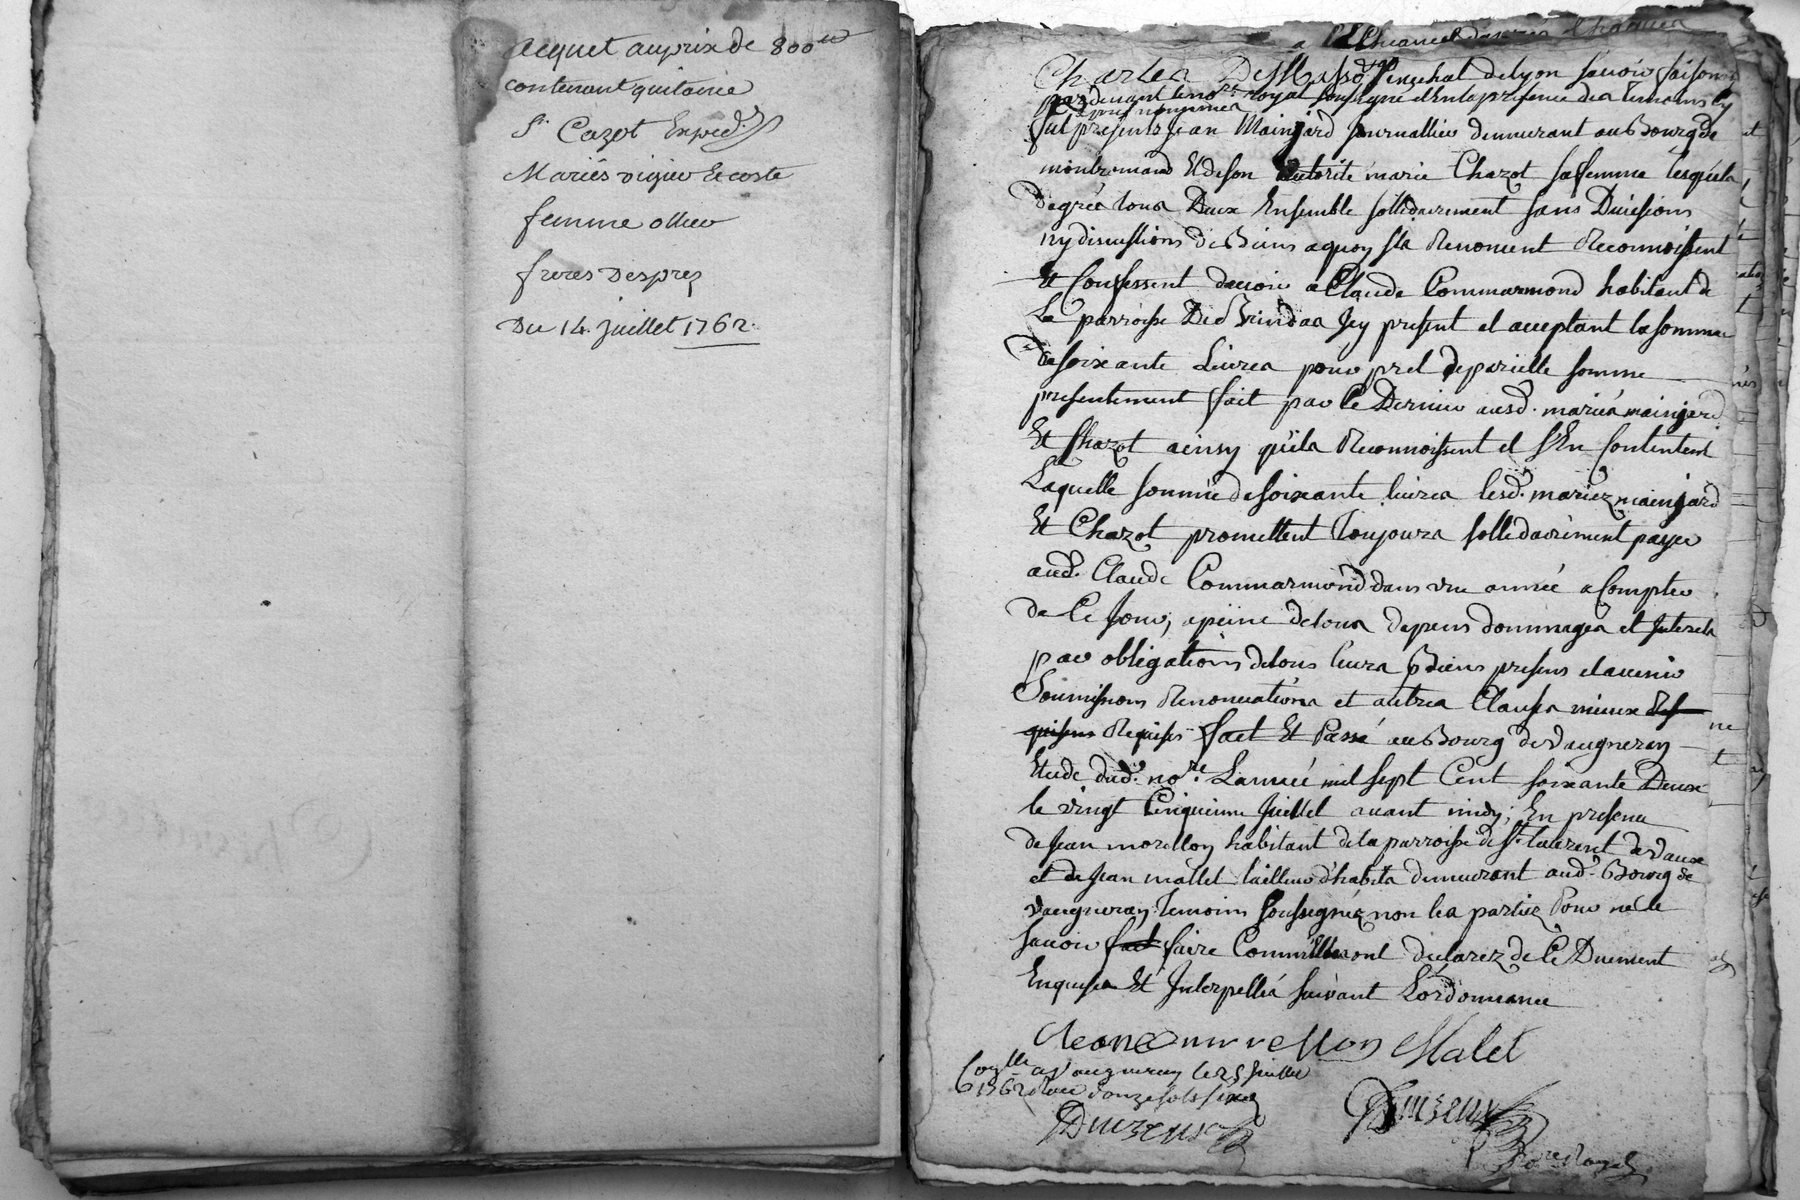 acquet auprix de 800
contenant quitance
Sr Cazot
Mariés vigier Et coste
femme
freres Desprez
Du 14. juillet 1762.
Charles De Massô senechal de lyon savoir faisons
pardevant le nore royal soussigné et En la presence des temoins
furent presents Jean Mainjard Journallier demeurant au Bourg de
montromand Et de son autorité marie Chazot sa femme lesquels
de gré tous Deux Ensemble sollidairement sans Divisions
ny discustions de Biens a quoy Ils Renoncent Reconnoissent
Et Confessent devoir a Claude Commarmond habitant de
La parroisse Icy present et acceptant la somme
de soixante Livres pour pret de parielle somme
presentement fait par le Dernier ausd. mariés mainjard
Et Chazot ainsy qu'ils Reconnoissent et s'En Contentent
Laquelle somme de soixante livres lesd. mariez mainjard
Et Chazot promettent Toujours sollidairement payer
aud. Claude Commarmond dans une année a Compter
de Ce Jour, a peine de tous depens dommages et Interets
par obligations de tous leurs Biens presens et avenir
Soumissions Renonciations et autres Clauses mieux
Requises fait Et Passé au Bourg de Vaugneray
Etude dud. nore. L'année mil sept Cent soixante Deux
le vingt Cinquieme Juillet avant midy; En presence
de Jean morellon habitant de la parroisse de St. laurent de Vaux
et de Jean mallet tailleur d'habits demeurant aud. Bourg de
vaugneray temoins soussignéz non les partiez Pour ne le
savoir faire Comme Ils ont declarez de Ce Duement
Enquises Et Interpellés suivant L'ordonnance
Jean morellon Malet
Conlle a Vaugneray le 25 juillet
1762 Reçu douze sols six